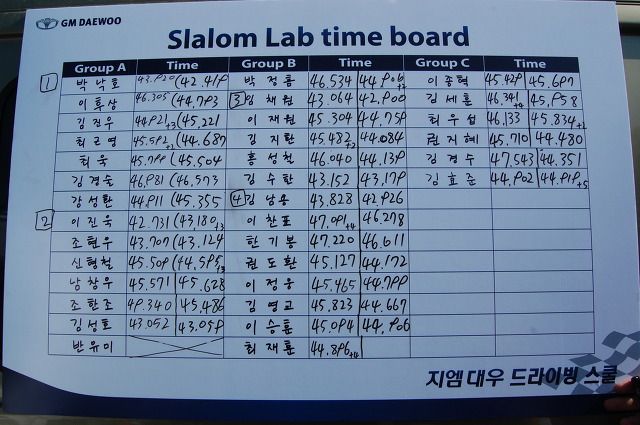 GM DAEWOO
Slalom Lab time board
Group A Time Group B Time Group C Time
1 박낙호 43.920 (42.419 박정룡 46.534 44.906+2 이종혁 45.429 45.697
이후상 46.305 (44.793 3 임채원 43.064 42.900 김세훈 46.341+4 45.958
김진우 44.921+3 (45.221 이재원 45.304 44.759 최우섭 46.133 45.834+2
최근영 45.592+2 (44.687 김지탄 45.482+2 44.084 권지혜 45.710 44.480
최욱 45.799 (45.504 홍성철 46.040 44.139 김경수 47.543 44.351
김경술 46.981 (46.573 김수한 43.152 43.179 김효준 44.902 44.919+5
강성환 44.911 (45.355 4 김남용 43.828 42.926
2 이진욱 42.731 (43.180+3 이찬표 47.091+4 46.278
조현우 43.707 (43.124 탄기봉 47.220 46.011
신형철 45.509 (44.595+3 권도환 45.127 44.172
남창우 45.571 45.628 이정웅 45.465 44.799
조한조 49.340 45.486 김영교 45.823 44.667
김성호 43.052 43.059 이승훈 45.094 44.906
반유미 최재훈 44.896+4
지엠대우 드라이빙 스쿨